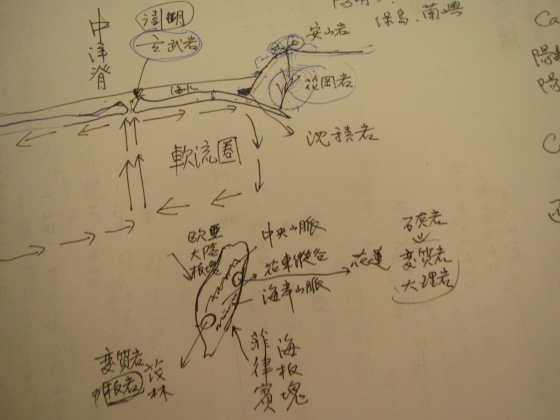 綠島、蘭嶼
安山岩
澎湖
玄武岩
中洋脊
海水
花岡岩
沈積岩
軟流圈
歐亞
大陸
板塊
中央山脈
花東縱谷
海岸山脈
花蓮
石灰岩
変質岩
大理岩
菲律賓
海板塊
変質岩
板岩
茂林